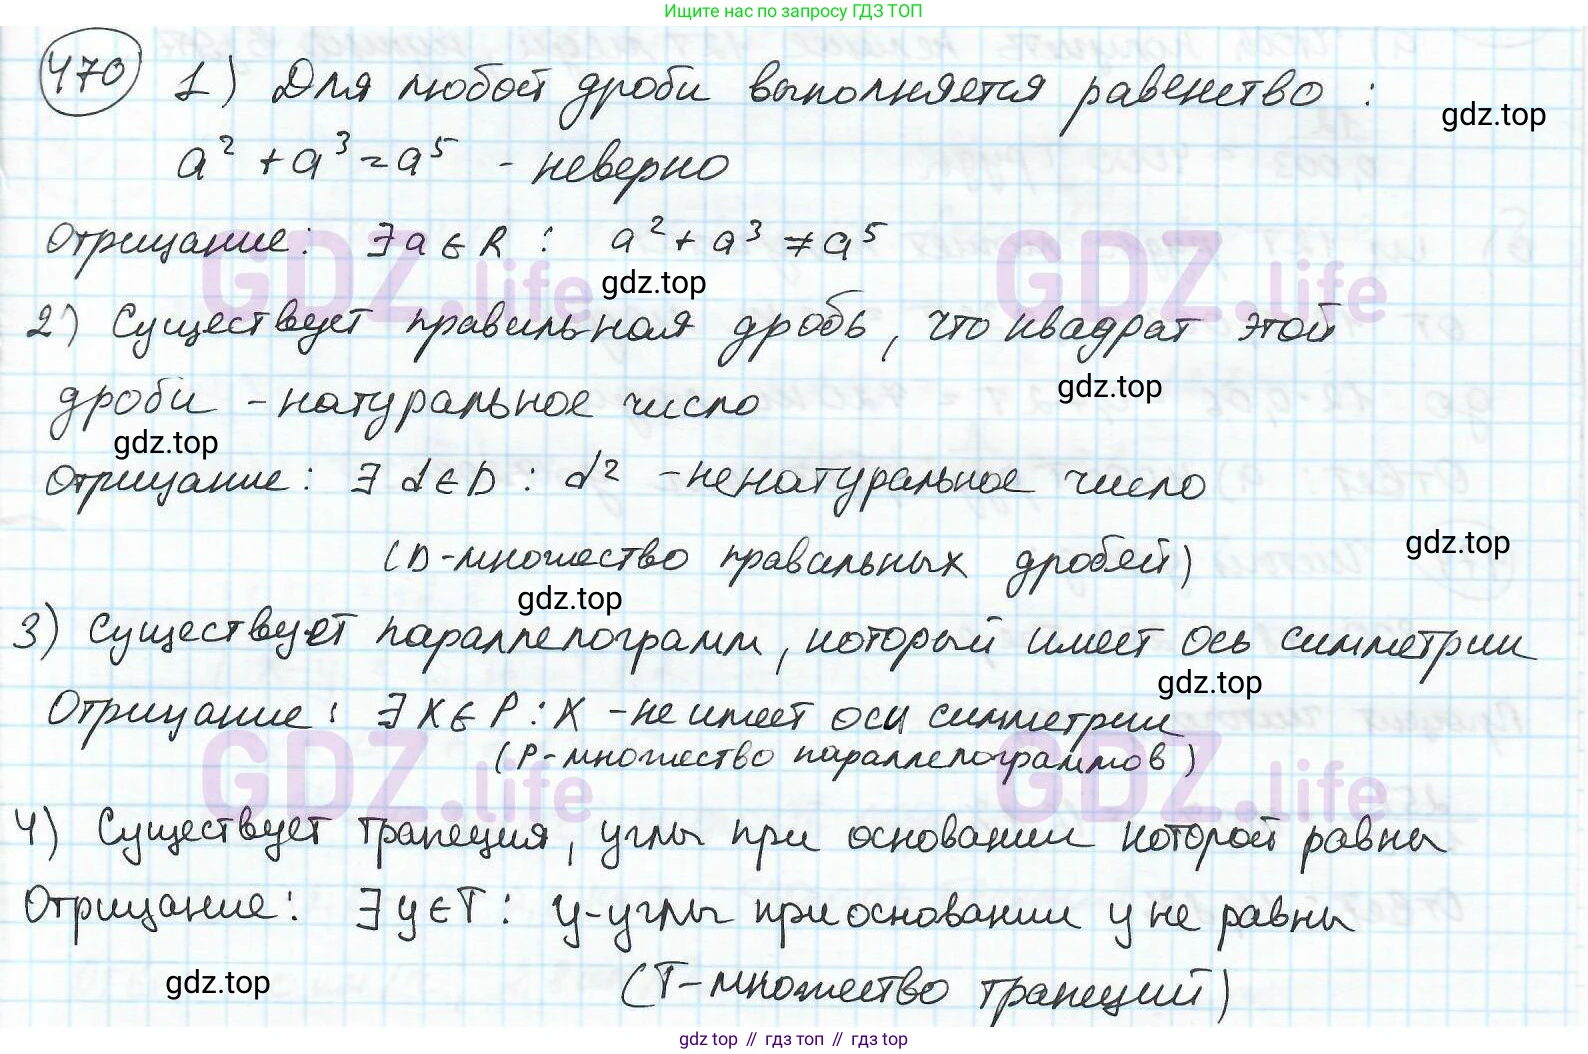 Ищите нас по запросу ГДЗ ТОП
470 1) Для любой дроби выполняется равенство :
gdz.top
a² + a³ = a⁵ - неверно
Отрицание: ∃ a ∈ R : a² + a³ ≠ a⁵
GDZ.life GDZ.life
gdz.top
2) Существует правильная дробь, что квадрат этой
gdz.top
дроби - натуральное число
gdz.top
Отрицание : ∃ d ∈ D : d² - ненатуральное число
(D - множество правильных дробей)
gdz.top
gdz.top
3) Существует параллелограмм, который имеет ось симметрии
gdz.top
Отрицание : ∃ X ∈ P : X - не имеет оси симметрии
(P - множество параллелограммов)
GDZ.life GDZ.life
4) Существует трапеция, углы при основании которой равны
Отрицание : ∃ y ∈ T : y - углы при основании y не равны
gdz.top
(T - множество трапеций)
gdz.top // гдз топ // gdz top